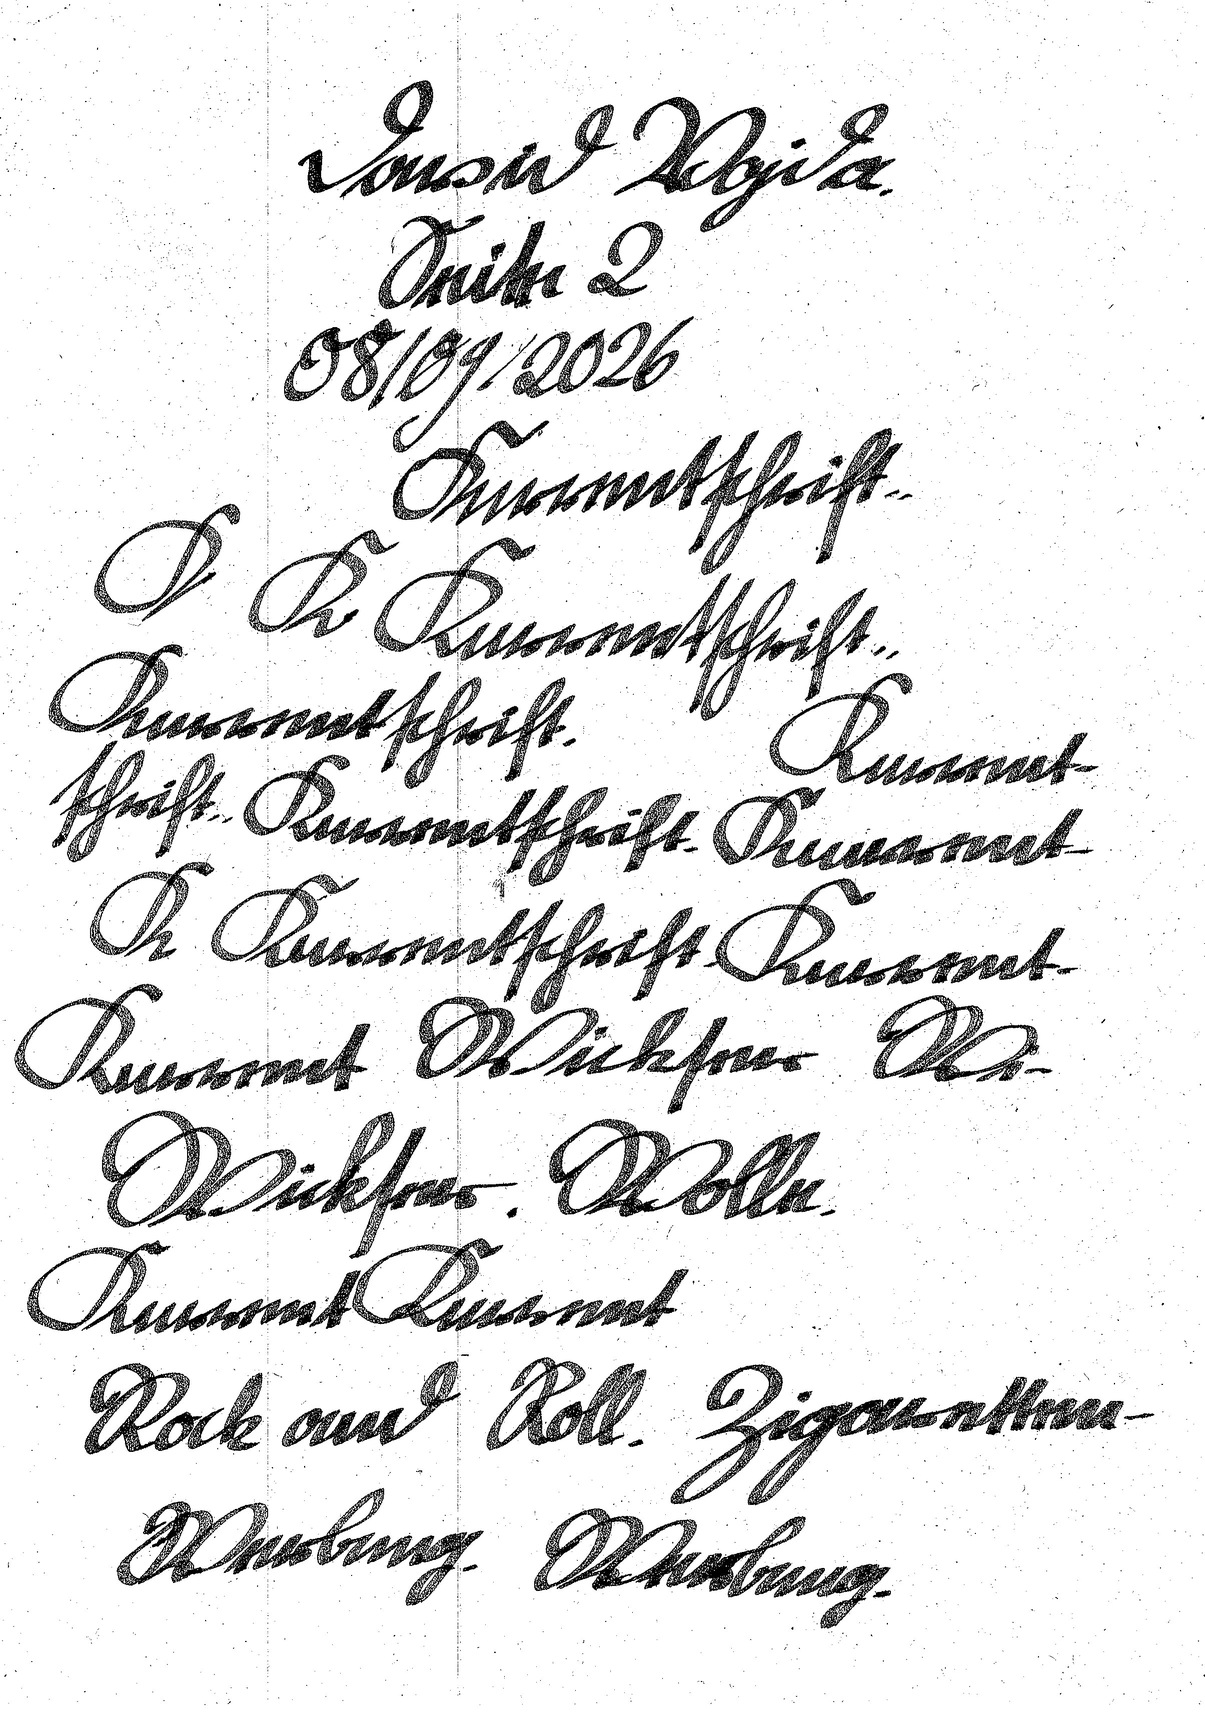 Dawid Wojda.
Seite 2
08/09/2026
Kurrentschrift..
K K Kurrentschrift..
Kurrentschrift. Kurrent-
schrift.. Kurrentschrift. Kurrent-
K Kurrentschrift. Kurrent-
Kurrent Wickser Wi-
Wickser. Wolle.
Kurrent Kurrent
Rock and Roll. Zigaretten-
Werbung. Werbung.